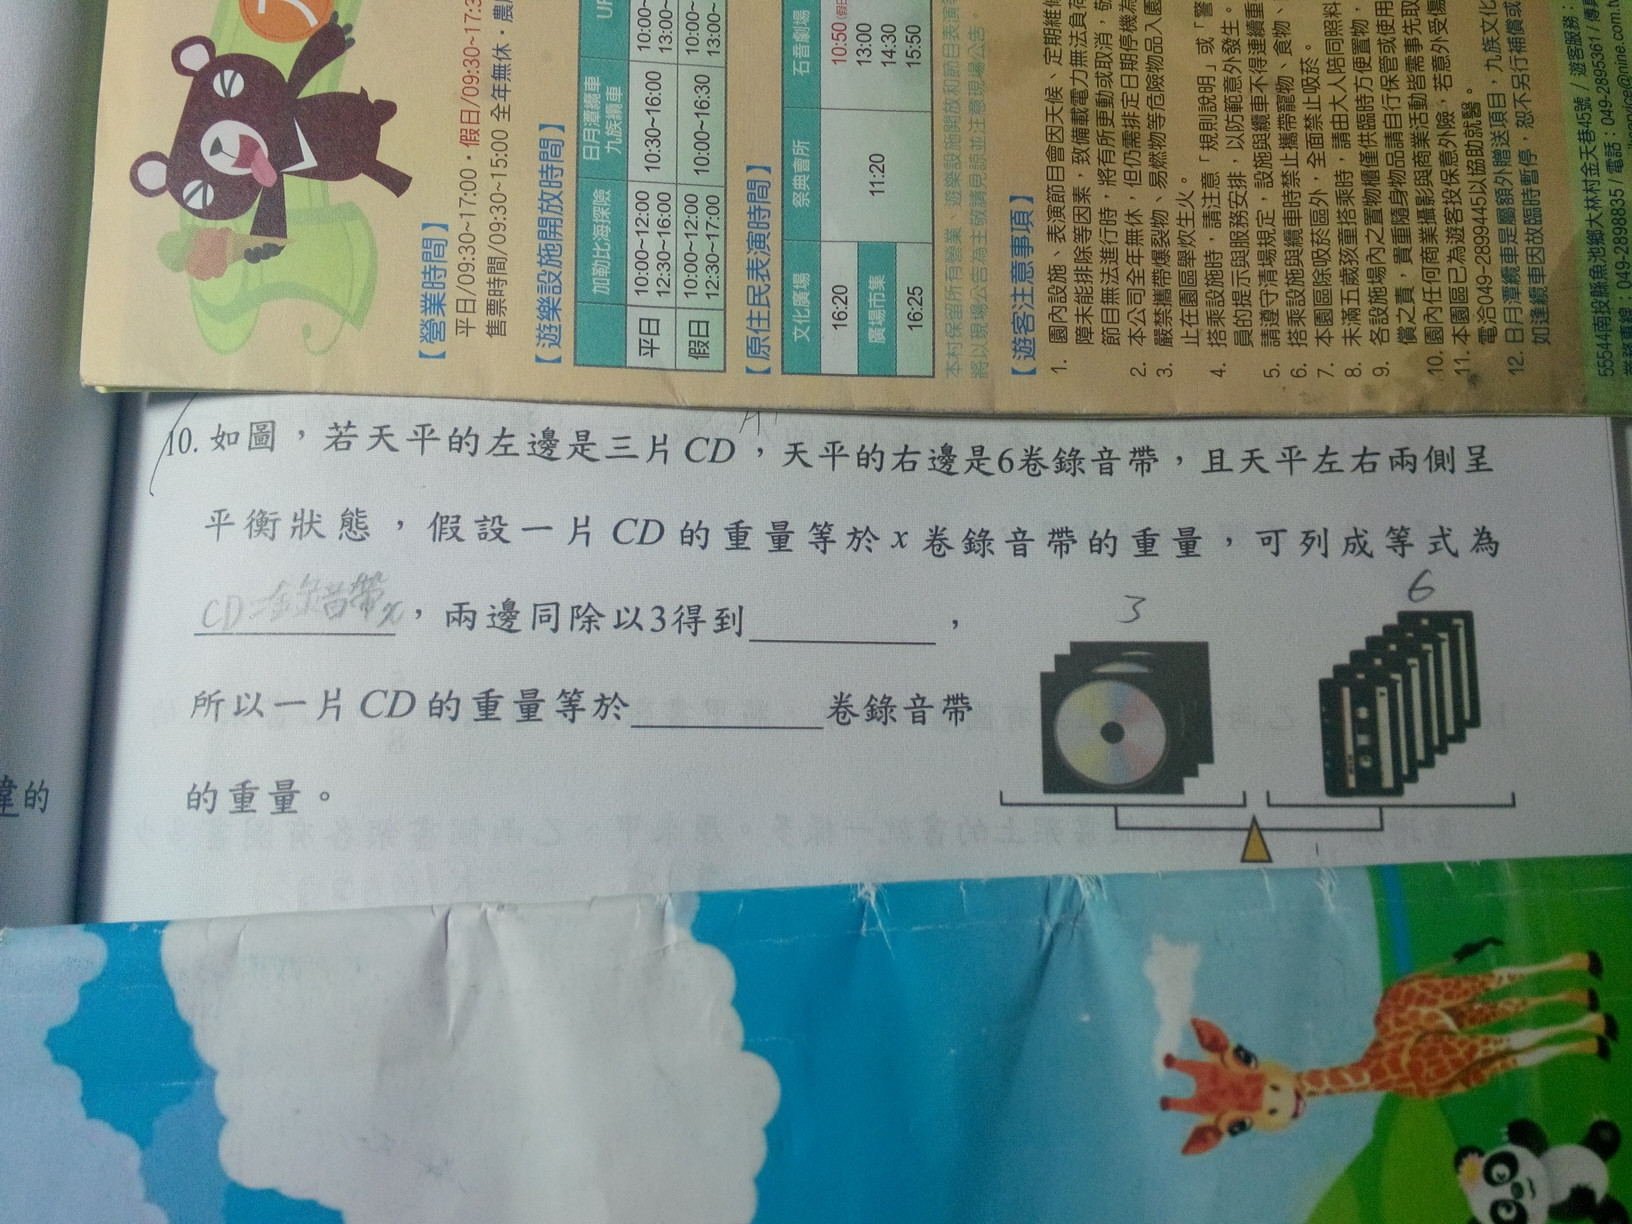 【營業時間】
平日/09:30~17:00・假日/09:30~17:3
售票時間/09:30~15:00 全年無休・農
【遊樂設施開放時間】
加勒比海探險 日月潭纜車 九族纜車 UF
平日 10:00~12:00 12:30~16:00 10:30~16:00 10:00~ 13:00~
假日 10:00~12:00 12:30~17:00 10:00~16:30 10:00~ 13:00~
【原住民表演時間】
文化廣場 祭典會所 石音劇場
16:20 11:20 10:50
廣場市集 13:00
14:30
16:25 15:50
本村保留所有營業、遊樂設施開放和節目表演
將以現場公告為主敬請見諒並注意現場公告。
【遊客注意事項】
1. 園內設施、表演節目會因天候、定期維修
障未能排除等因素,致備載電力無法負荷
節目無法進行時,將有所更動或取消,敬
2. 本公司全年無休,但仍需排定日期停機為
3. 嚴禁攜帶爆裂物、易燃物等危險物品入園
止在園區舉炊生火。
4. 搭乘設施時,請注意「規則說明」或「警
員的提示與服務安排,以防範意外發生。
5. 請遵守清場規定,設施與纜車不得連續重
6. 搭乘設施與纜車時禁止攜帶寵物、食物、
7. 本園區除吸菸區外,全面禁止吸菸。
8. 未滿五歲孩童搭乘時,請由大人陪同照料
9. 各設施場內之置物櫃僅供臨時方便置物,
償之責,貴重隨身物品請自行保管或使用
10. 園內任何商業攝影與商業活動皆需事先取
11. 本園區已為遊客投保意外險,若意外受傷
電洽049-2899445以協助就醫。
12. 日月潭纜車是屬額外贈送項目,九族文化
如逢纜車因故臨時暫停,恕不另行補償或
55544南投縣魚池鄉大林村金天巷45號 / 遊客服務:
業務專線:049-2898835 / 電話:049-2895361 / 傳真
service@nine.com.tw
10. 如圖,若天平的左邊是三片CD,天平的右邊是6卷錄音帶,且天平左右兩側呈
平衡狀態,假設一片CD的重量等於x卷錄音帶的重量,可列成等式為
CD=錄音帶x,兩邊同除以3得到________,
3 6
所以一片CD的重量等於________卷錄音帶
的重量。
的